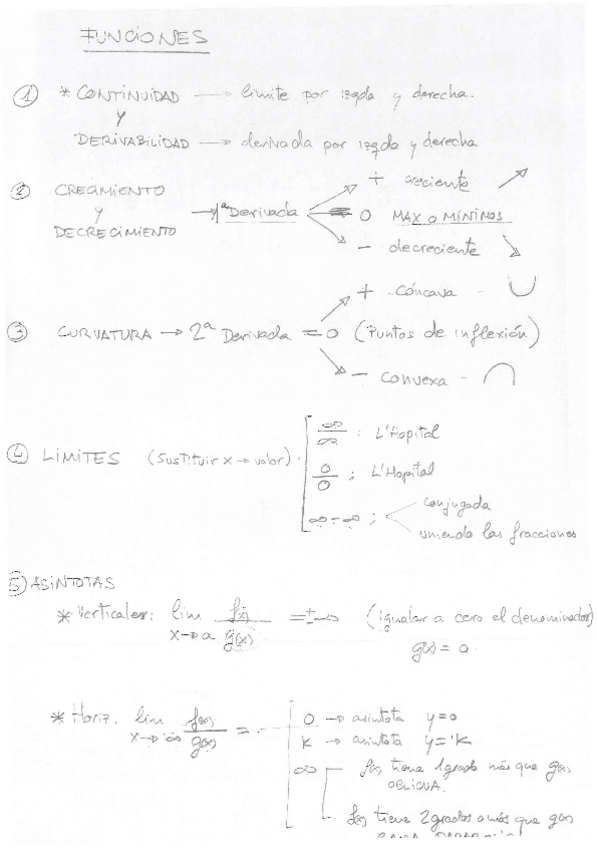 FUNCIONES
① * CONTINUIDAD → límite por izqda y derecha.
Y
DERIVABILIDAD → derivada por izqda y derecha
② CRECIMIENTO
Y
DECRECIMIENTO
→ 1ª Derivada
+ creciente ↗
= 0 MAX O MÍNIMOS
- decreciente ↘
+ cóncava - ∪
③ CURVATURA → 2ª Derivada = 0 (Puntos de inflexión)
- convexa - ∩
④ LÍMITES (sustituir x → valor).
∞/∞ : L'Hopital
0/0 ; L'Hopital
∞-∞ ;
conjugada
uniendo las fracciones
⑤ ASÍNTOTAS
* Verticales: lim x→a f(x)/g(x) = ±∞ (igualar a cero el denominador)
g(x) = 0.
* Horiz. lim x→∞ f(x)/g(x) =
0 → asíntota y=0
K → asíntota y=K
∞
f(x) tiene 1 grado más que g(x)
OBLICUA.
f(x) tiene 2 grados o más que g(x)